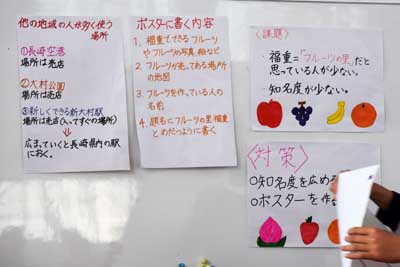 他の地域の人が多く使う
場所
①長崎空港
場所は売店
②大村公園
場所は売店
③新しくできる新大村駅
場所は売店(入ってすぐの場所)
↓
広まっていくと長崎県内の駅
におく。
ポスターに書く内容
1. 福重でできるフルーツ
やフルーツの写真、絵など
2. フルーツが売ってある場所
の地図
3. フルーツを作っている人の
名前
4. 題名にフルーツの里福重
とめだつように書く
〈課題〉
・福重=「フルーツの里」だと
思っている人が少ない。
・知名度が少ない。
〈対策〉
○知名度を広める
○ポスターを作